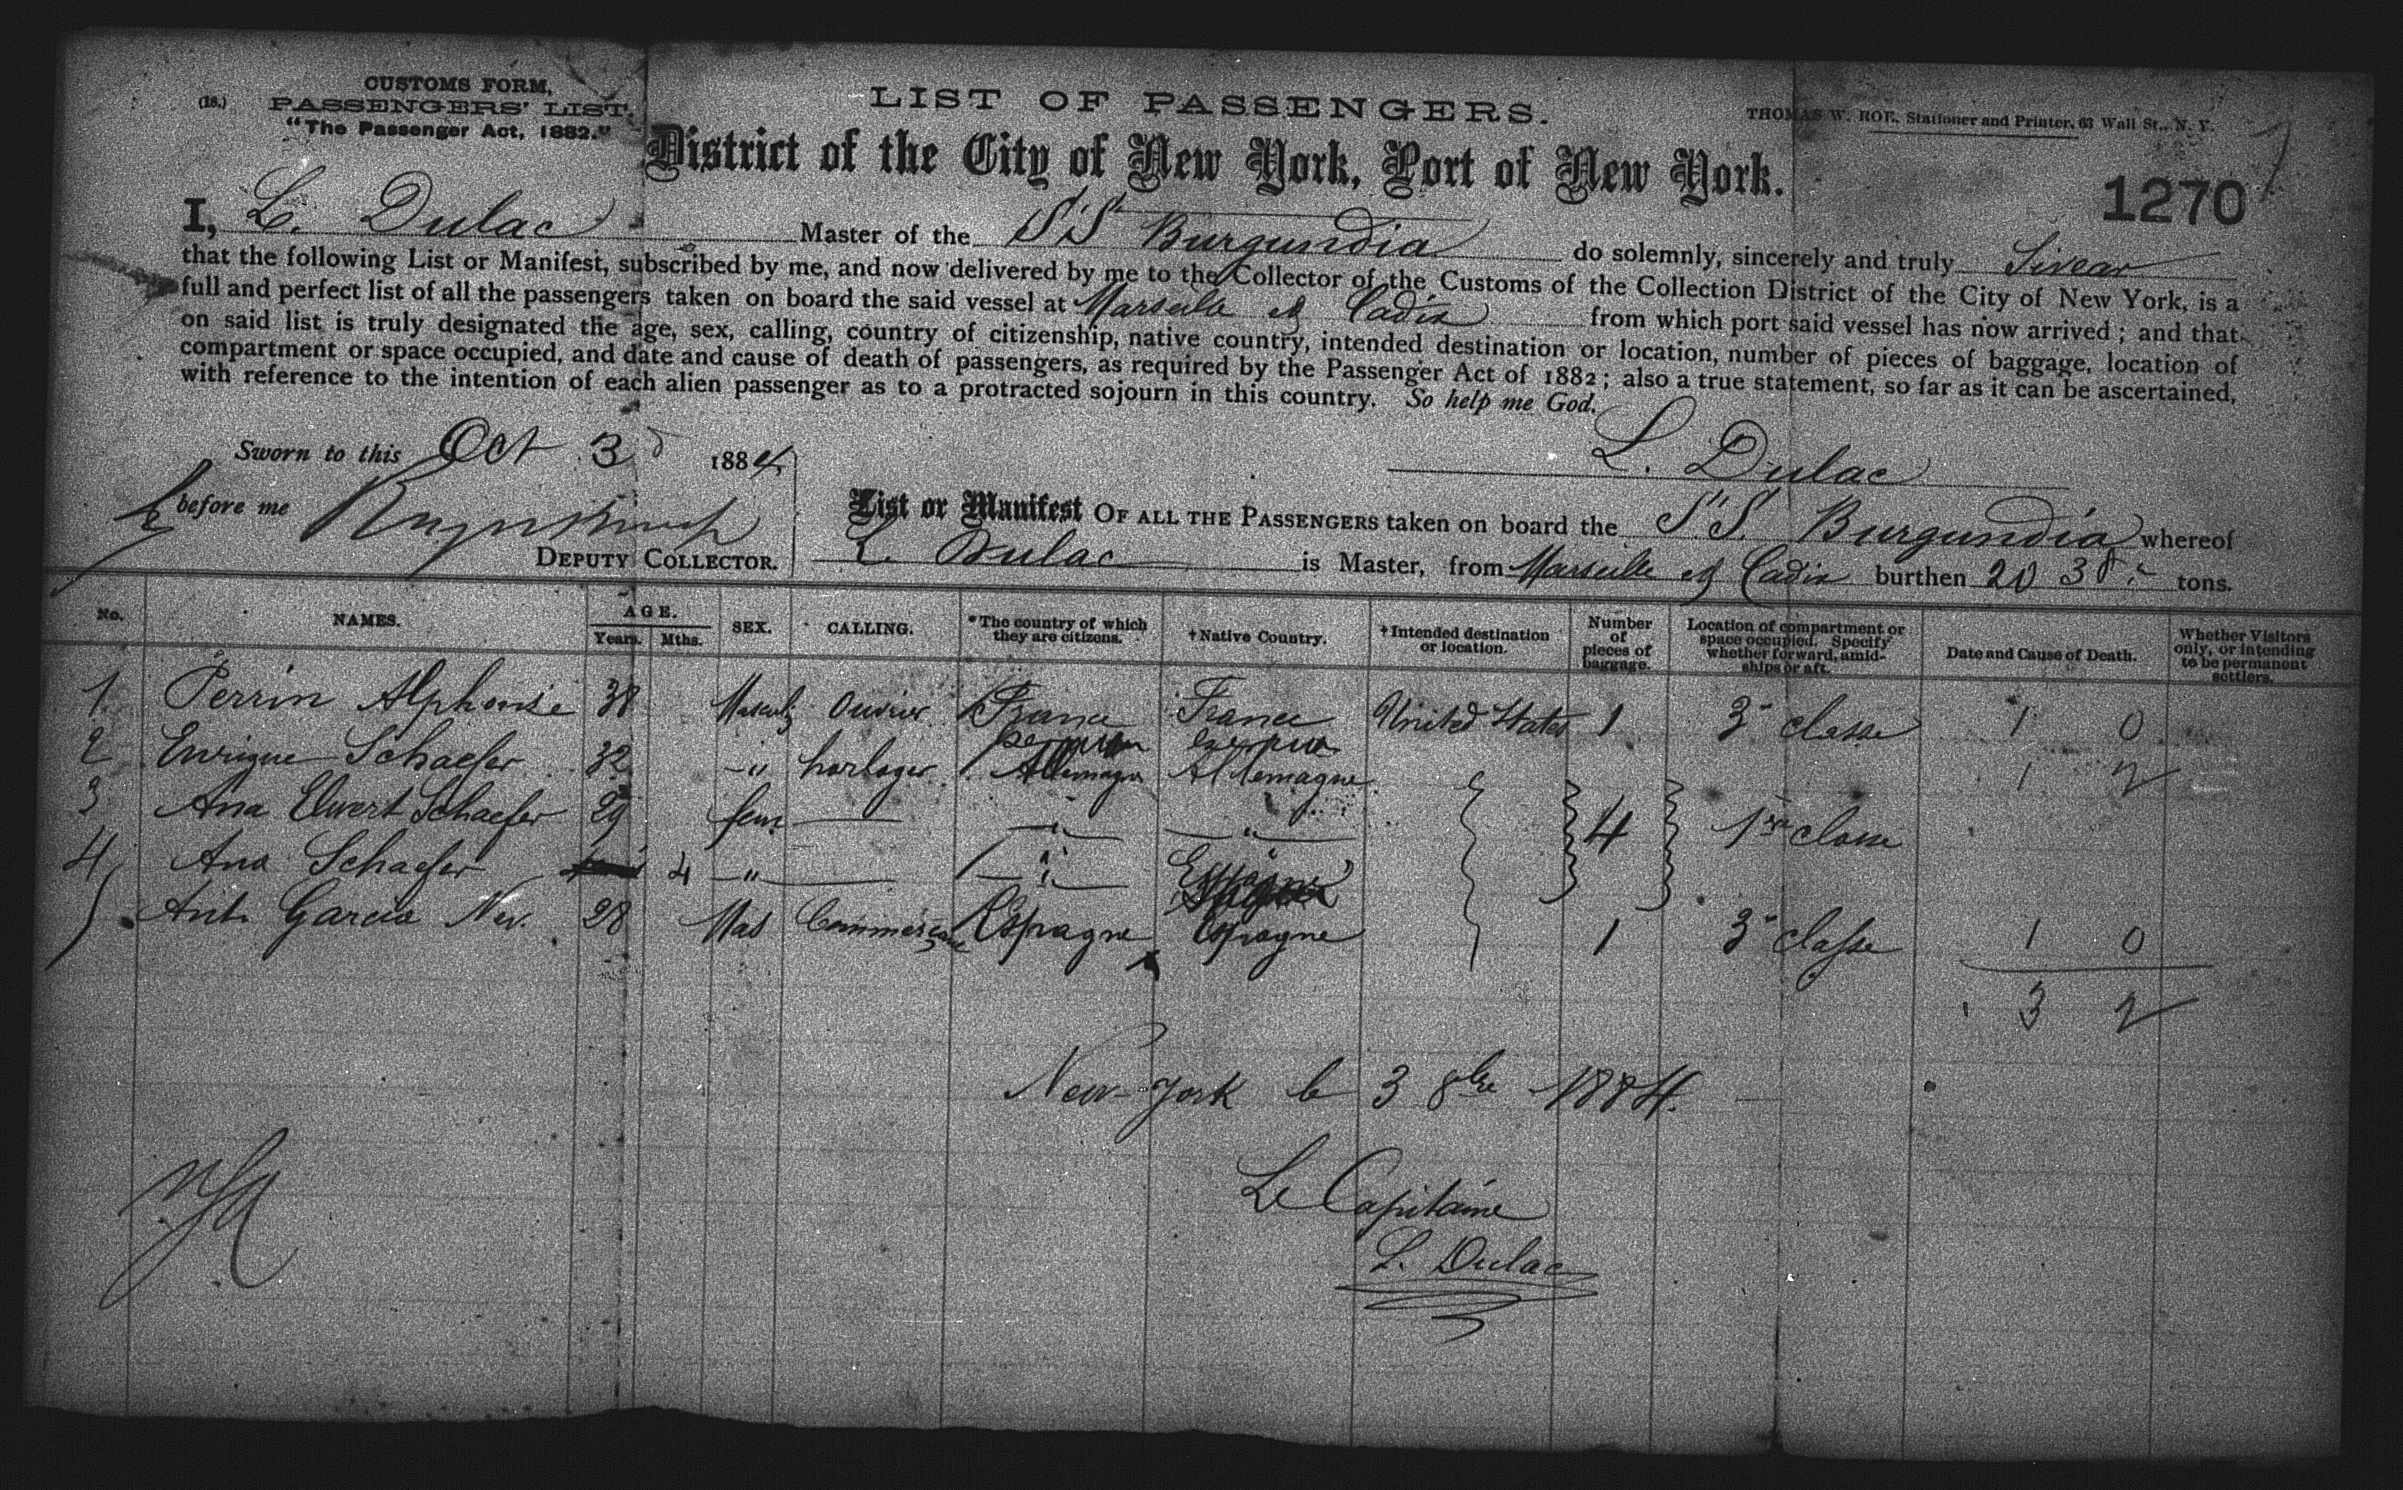 CUSTOMS FORM,
(18.) PASSENGERS' LIST,
"The Passenger Act, 1882."
LIST OF PASSENGERS.
THOMAS W. ROE, Stationer and Printer, 63 Wall St., N. Y.
District of the City of New York, Port of New York.
1270
I, L. Dulac Master of the SS Burgundia do solemnly, sincerely and truly Swear
that the following List or Manifest, subscribed by me, and now delivered by me to the Collector of the Customs of the Collection District of the City of New York, is a
full and perfect list of all the passengers taken on board the said vessel at Marseille et Cadix from which port said vessel has now arrived; and that
on said list is truly designated the age, sex, calling, country of citizenship, native country, intended destination or location, number of pieces of baggage, location of
compartment or space occupied, and date and cause of death of passengers, as required by the Passenger Act of 1882; also a true statement, so far as it can be ascertained,
with reference to the intention of each alien passenger as to a protracted sojourn in this country. So help me God.
Sworn to this Oct 3d 1884
L. Dulac
before me
DEPUTY COLLECTOR.
List or Manifest OF ALL THE PASSENGERS taken on board the S.S. Burgundia whereof
L. Dulac is Master, from Marseille et Cadix burthen tons.
No. NAMES. AGE. Years. Mths. SEX. CALLING. *The country of which they are citizens. †Native Country. †Intended destination or location. Number of pieces of baggage. Location of compartment or space occupied. Specify whether forward, amidships or aft. Date and Cause of Death. Whether Visitors only, or intending to be permanent settlers.
1 Perrin Alphonse 38 Ouvrier France France United States 1 3e classe 1 0
2 Enrique Schaefer 32 -"- horloger Allemagne Allemagne 1 2
3 Ana Elwert Schaefer 29 fem — -"- -"- 4 1re classe
4 Ana Schaefer 4 -"- — -"- Espagne
5 Ant. Garcia Nev. 28 Mas Commerçant Espagne Espagne 1 3e classe 1 0
3 2
New-York le 3 8bre 1884.
Le Capitaine
L. Dulac